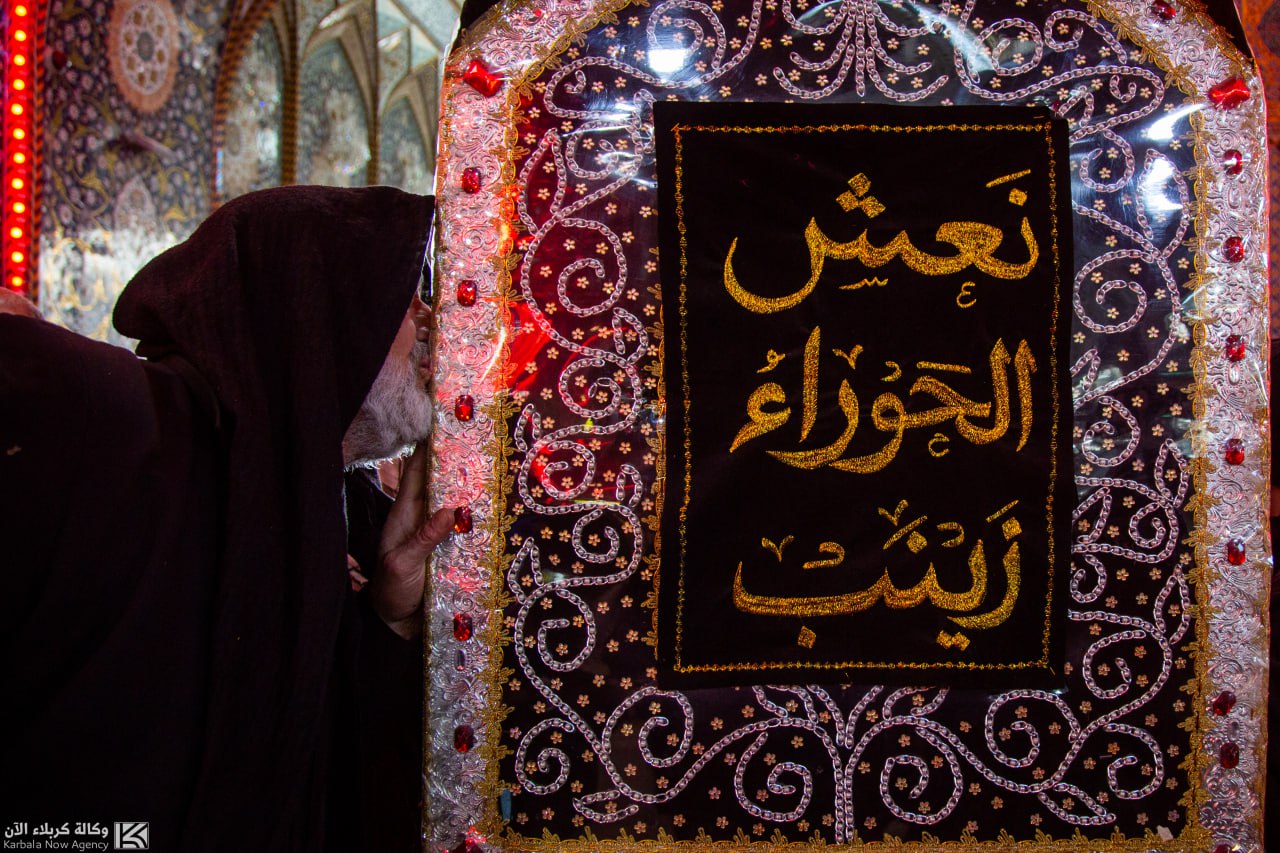 نَعَشِ
الحَوْرَاءُ
زَيْنَبْ
وكالة كربلاء الآن
Karbala Now Agency